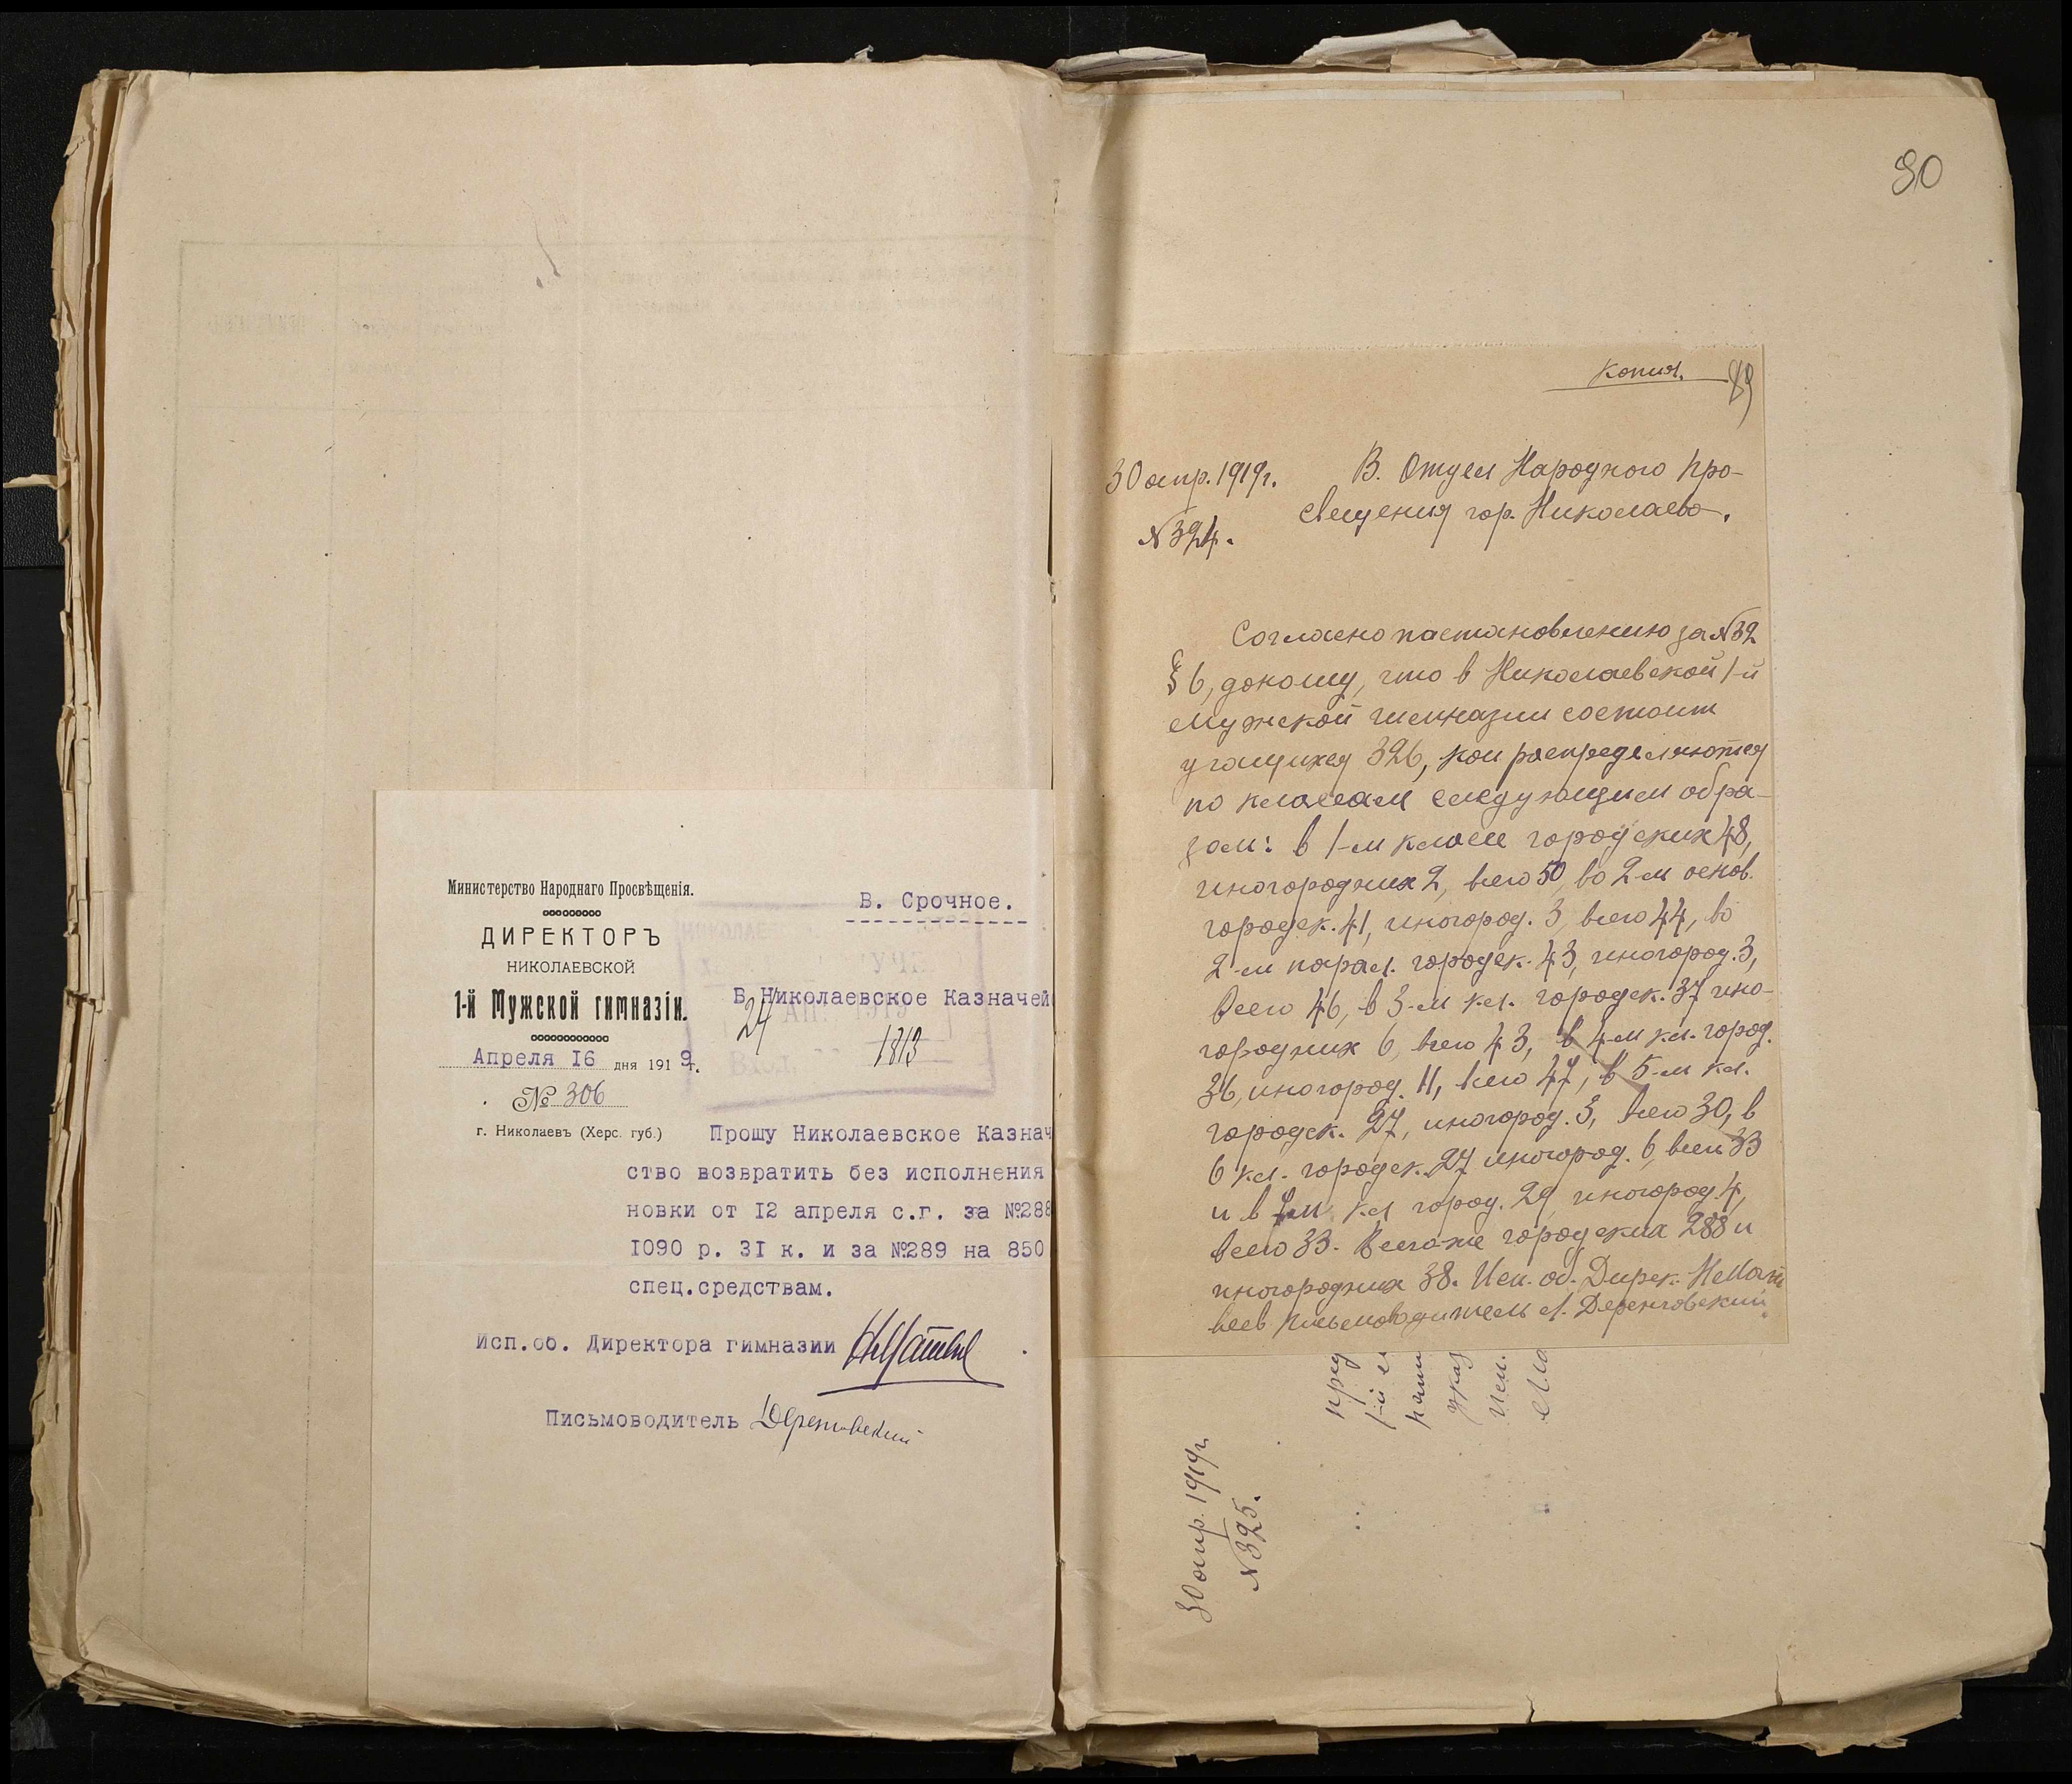 Министерство Народнаго Просвѣщенія.
ДИРЕКТОРЪ
НИКОЛАЕВСКОЙ
1-й Мужской гимназіи.
Апреля 16 дня 1919г.
№ 306
г. Николаевъ (Херс. губ.)
В. Срочное.
В Николаевское Казначей
24
1813
Прошу Николаевское Казнач
ство возвратить без исполнения
новки от 12 апреля с.г. за №288
1090 р. 31 к. и за №289 на 850
спец.средствам.
Исп.об. Директора гимназии
Письмоводитель
90
Копия.
89
30 апр. 1919г.
№324.
В. Отдел Народного Про-
свещения гор. Николаева.
Согласно постановлению за №32
§ 6, доношу, что в Николаевской 1-й
мужской гимназии состоит
учащихся 326, кои распределяются
по классам следующим обра-
зом: в 1-м классе городских 48,
иногородних 2, всего 50, во 2-м основ.
городск. 41, иногород. 3, всего 44, во
2-м парал. городск. 43, иногород. 3,
всего 46, в 3-м кл. городск. 37 ино-
городних 6, всего 43, в 4-м кл. город.
36, иногород. 11, всего 47, в 5-м кл.
городск. 27, иногород. 3, всего 30, в
6 кл. городск. 27 иногород. 6, всего 33
и в 7-м кл город. 29, иногород. 4,
всего 33. Всего-же городских 288 и
иногородних 38. Исп. об. Дирек. Н. Мат
веев Письмоводитель Л. Деренговский.
30 апр. 1919г.
№325.